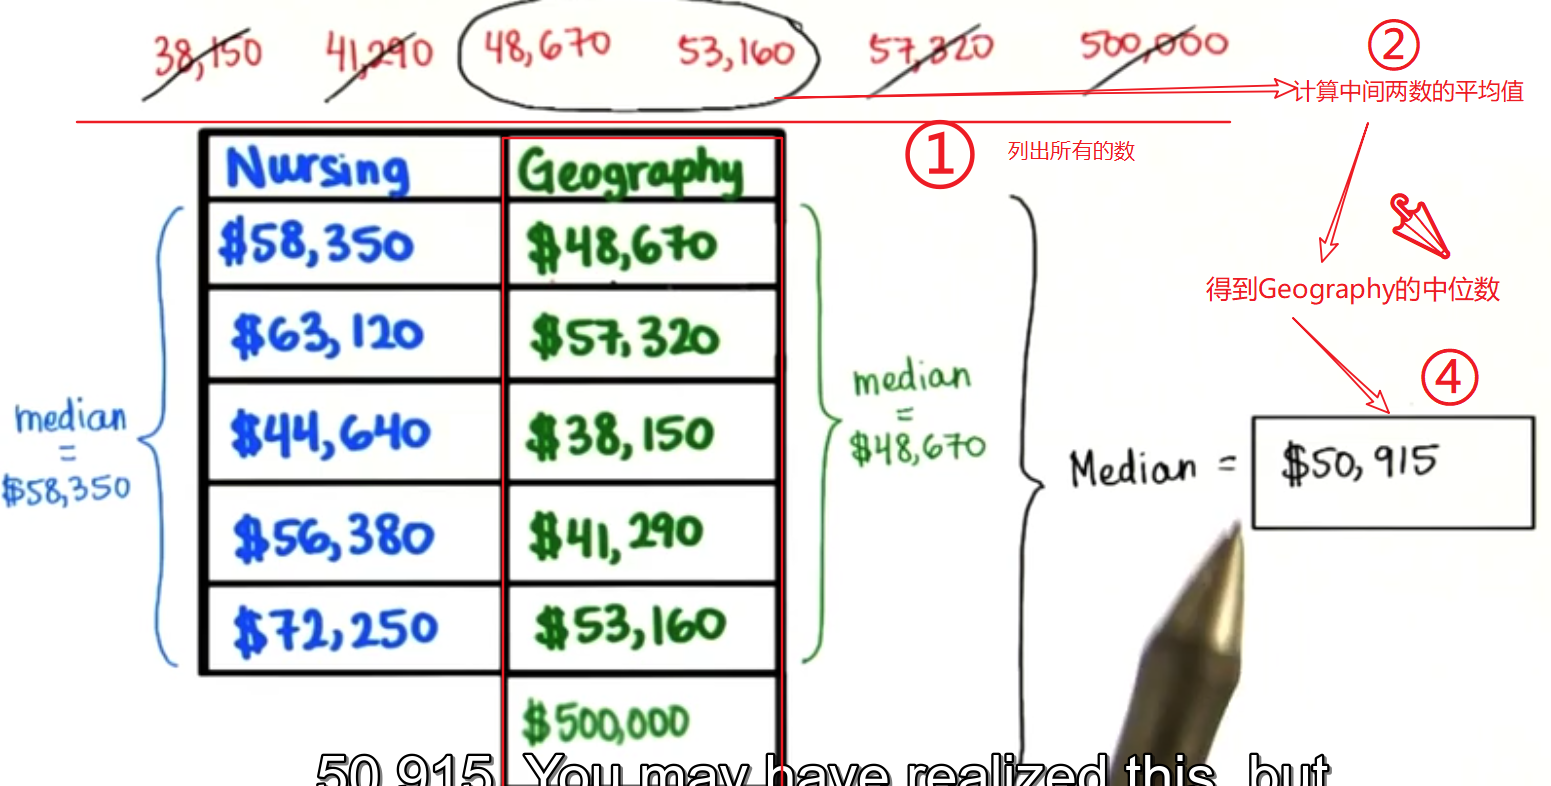 38,150 41,290 48,670 53,160 57,320 500,000
②
计算中间两数的平均值
①
列出所有的数
Nursing Geography
$58,350 $48,670
$63,120 $57,320
$44,640 $38,150
$56,380 $41,290
$72,250 $53,160
$500,000
median
=
$58,350
median
=
$48,670
得到Geography的中位数
④
Median = $50,915
50,915. You may have realized this, but